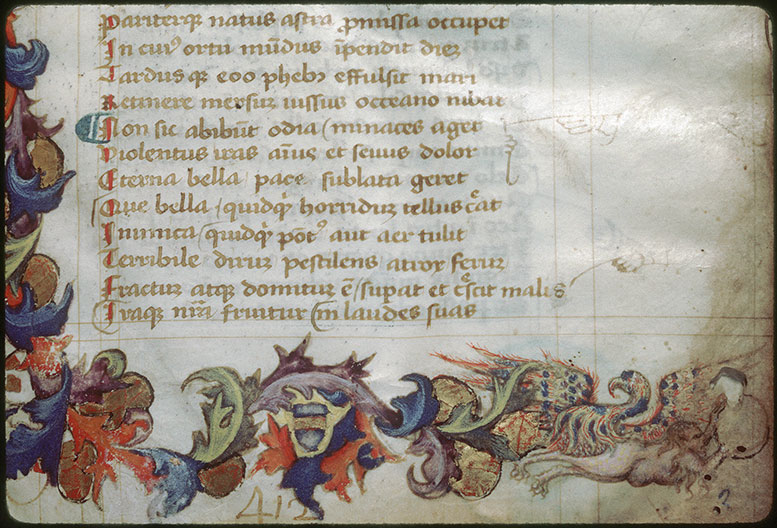 Pariterqꝫ natus astra ꝓmissa occupet
In cuiꝰ ortu mūdus īpendit dieꝫ
Tardusqꝫ eoo phebꝰ effulsit mari
Retinere mersuꝫ iussus occeano iubar
Non sic abibūt odia / minaces aget
Violentus iras aīus et seuus dolor
Eterna bella / pace sublata geret
Que bella / quidqͥd horriduꝫ tellus cͤat
Inimica / quidqͥd pōtꝰ aut aer tulit
Terribile diruꝫ pestilens atrox feruꝫ
Fractuꝫ atqꝫ domituꝫ ē / supat et cͤscit malis
Iraqꝫ nr̄a fruitur / in laudes suas
412